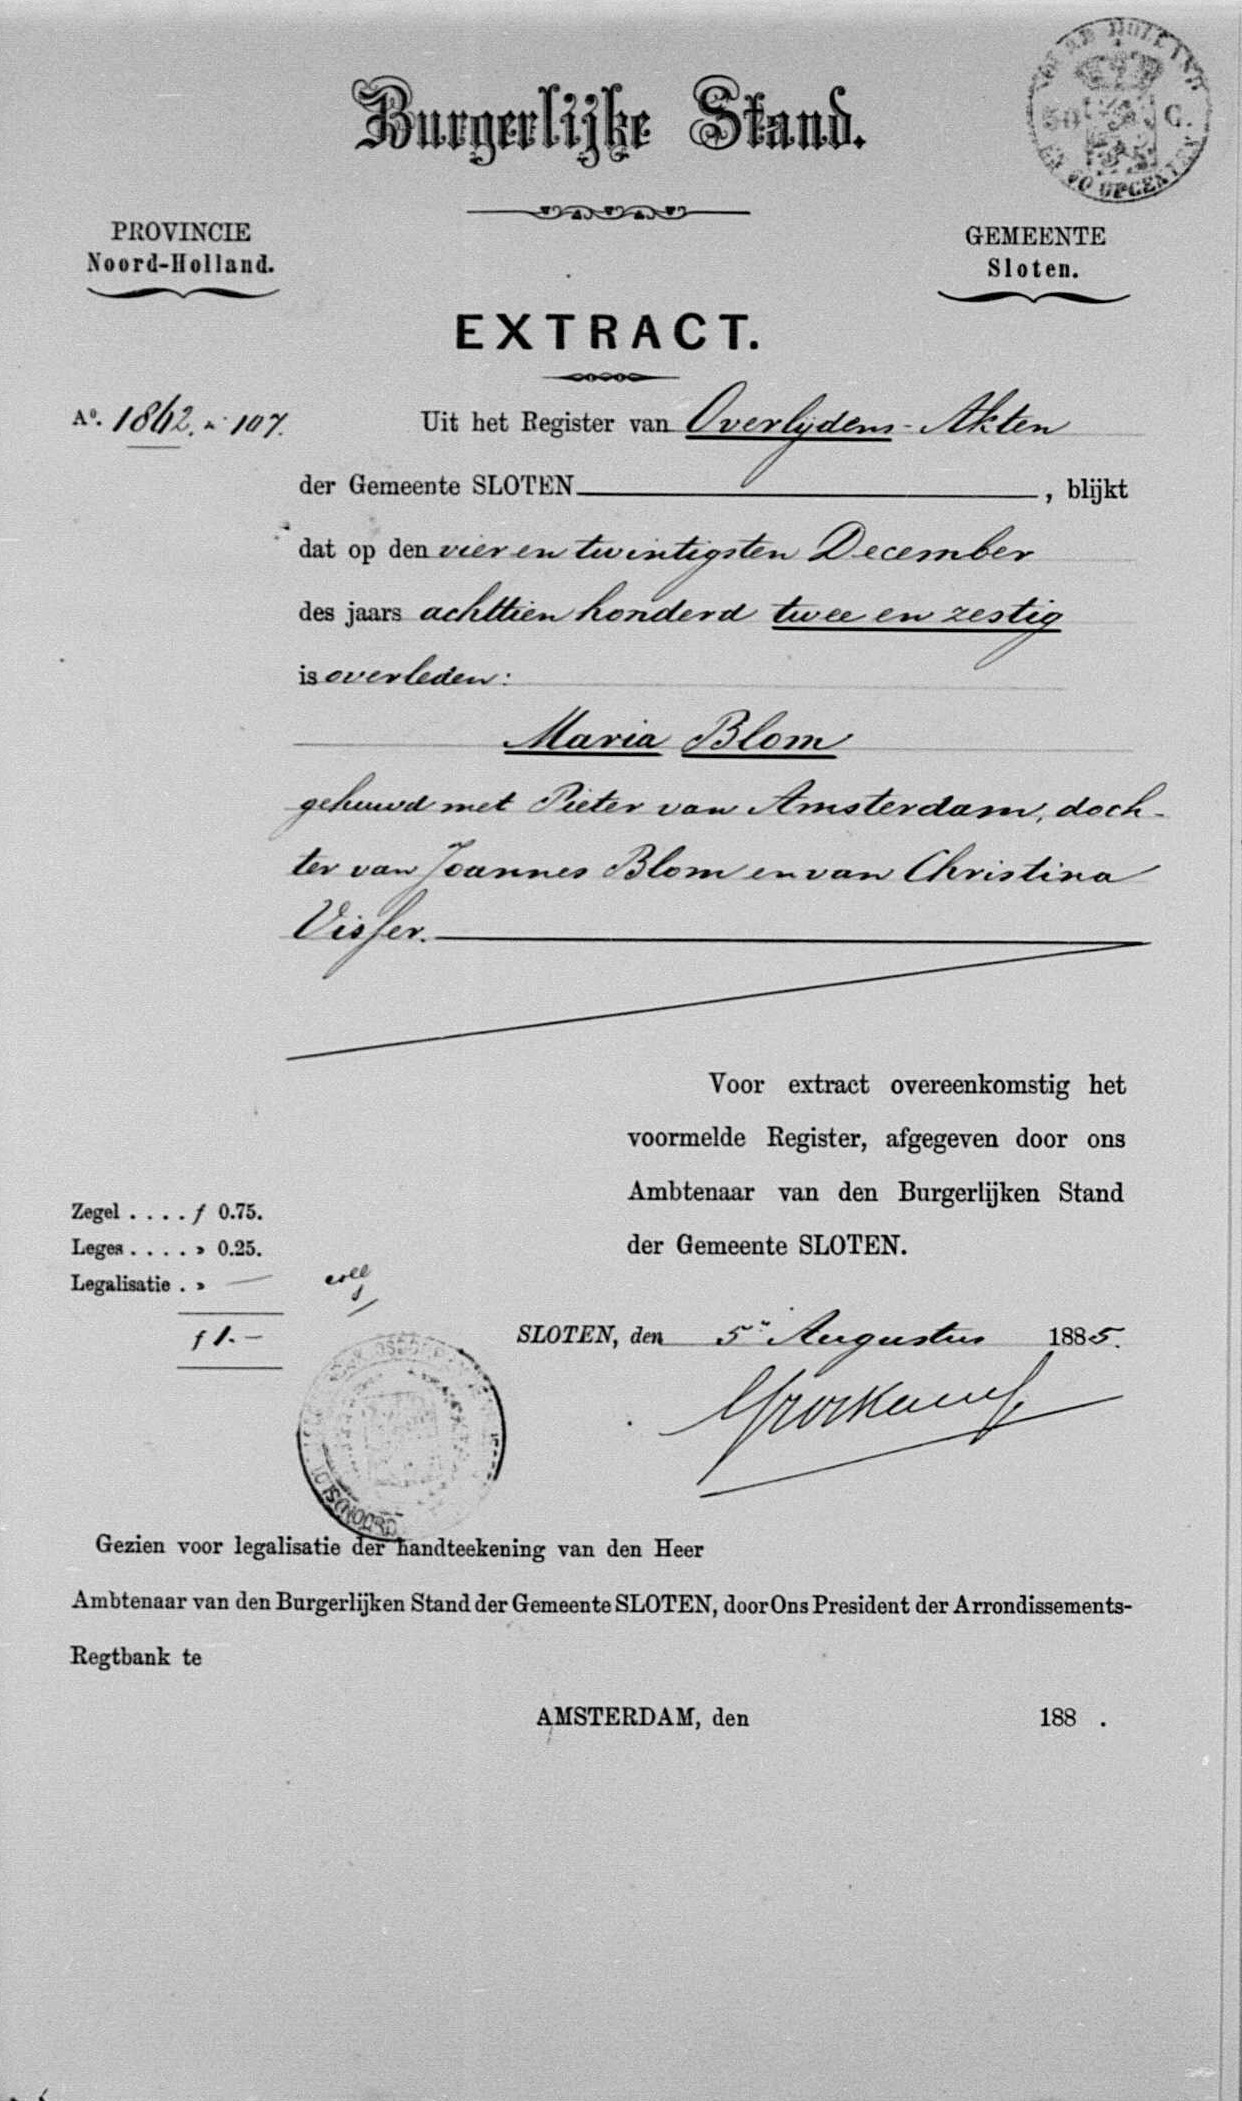 Burgerlijke Stand.
NOORD HOLLAND
50 C.
EN 50 OPCENTEN
PROVINCIE
Noord-Holland.
GEMEENTE
Sloten.
EXTRACT.
Aº. 1862. n 107.
Uit het Register van Overlijdens-Akten
der Gemeente SLOTEN, blijkt
dat op den vier en twintigsten December
des jaars achttien honderd twee en zestig
is overleden:
Maria Blom
gehuwd met Pieter van Amsterdam, doch-
ter van Joannes Blom en van Christina
Visser.
Voor extract overeenkomstig het
voormelde Register, afgegeven door ons
Ambtenaar van den Burgerlijken Stand
der Gemeente SLOTEN.
Zegel . . . . f 0.75.
Leges . . . . » 0.25.
Legalisatie . » —
f 1.—
coll
SLOTEN, den 5n Augustus 1885.
Gezien voor legalisatie der handteekening van den Heer
Ambtenaar van den Burgerlijken Stand der Gemeente SLOTEN, door Ons President der Arrondissements-
Regtbank te
AMSTERDAM, den 188 .